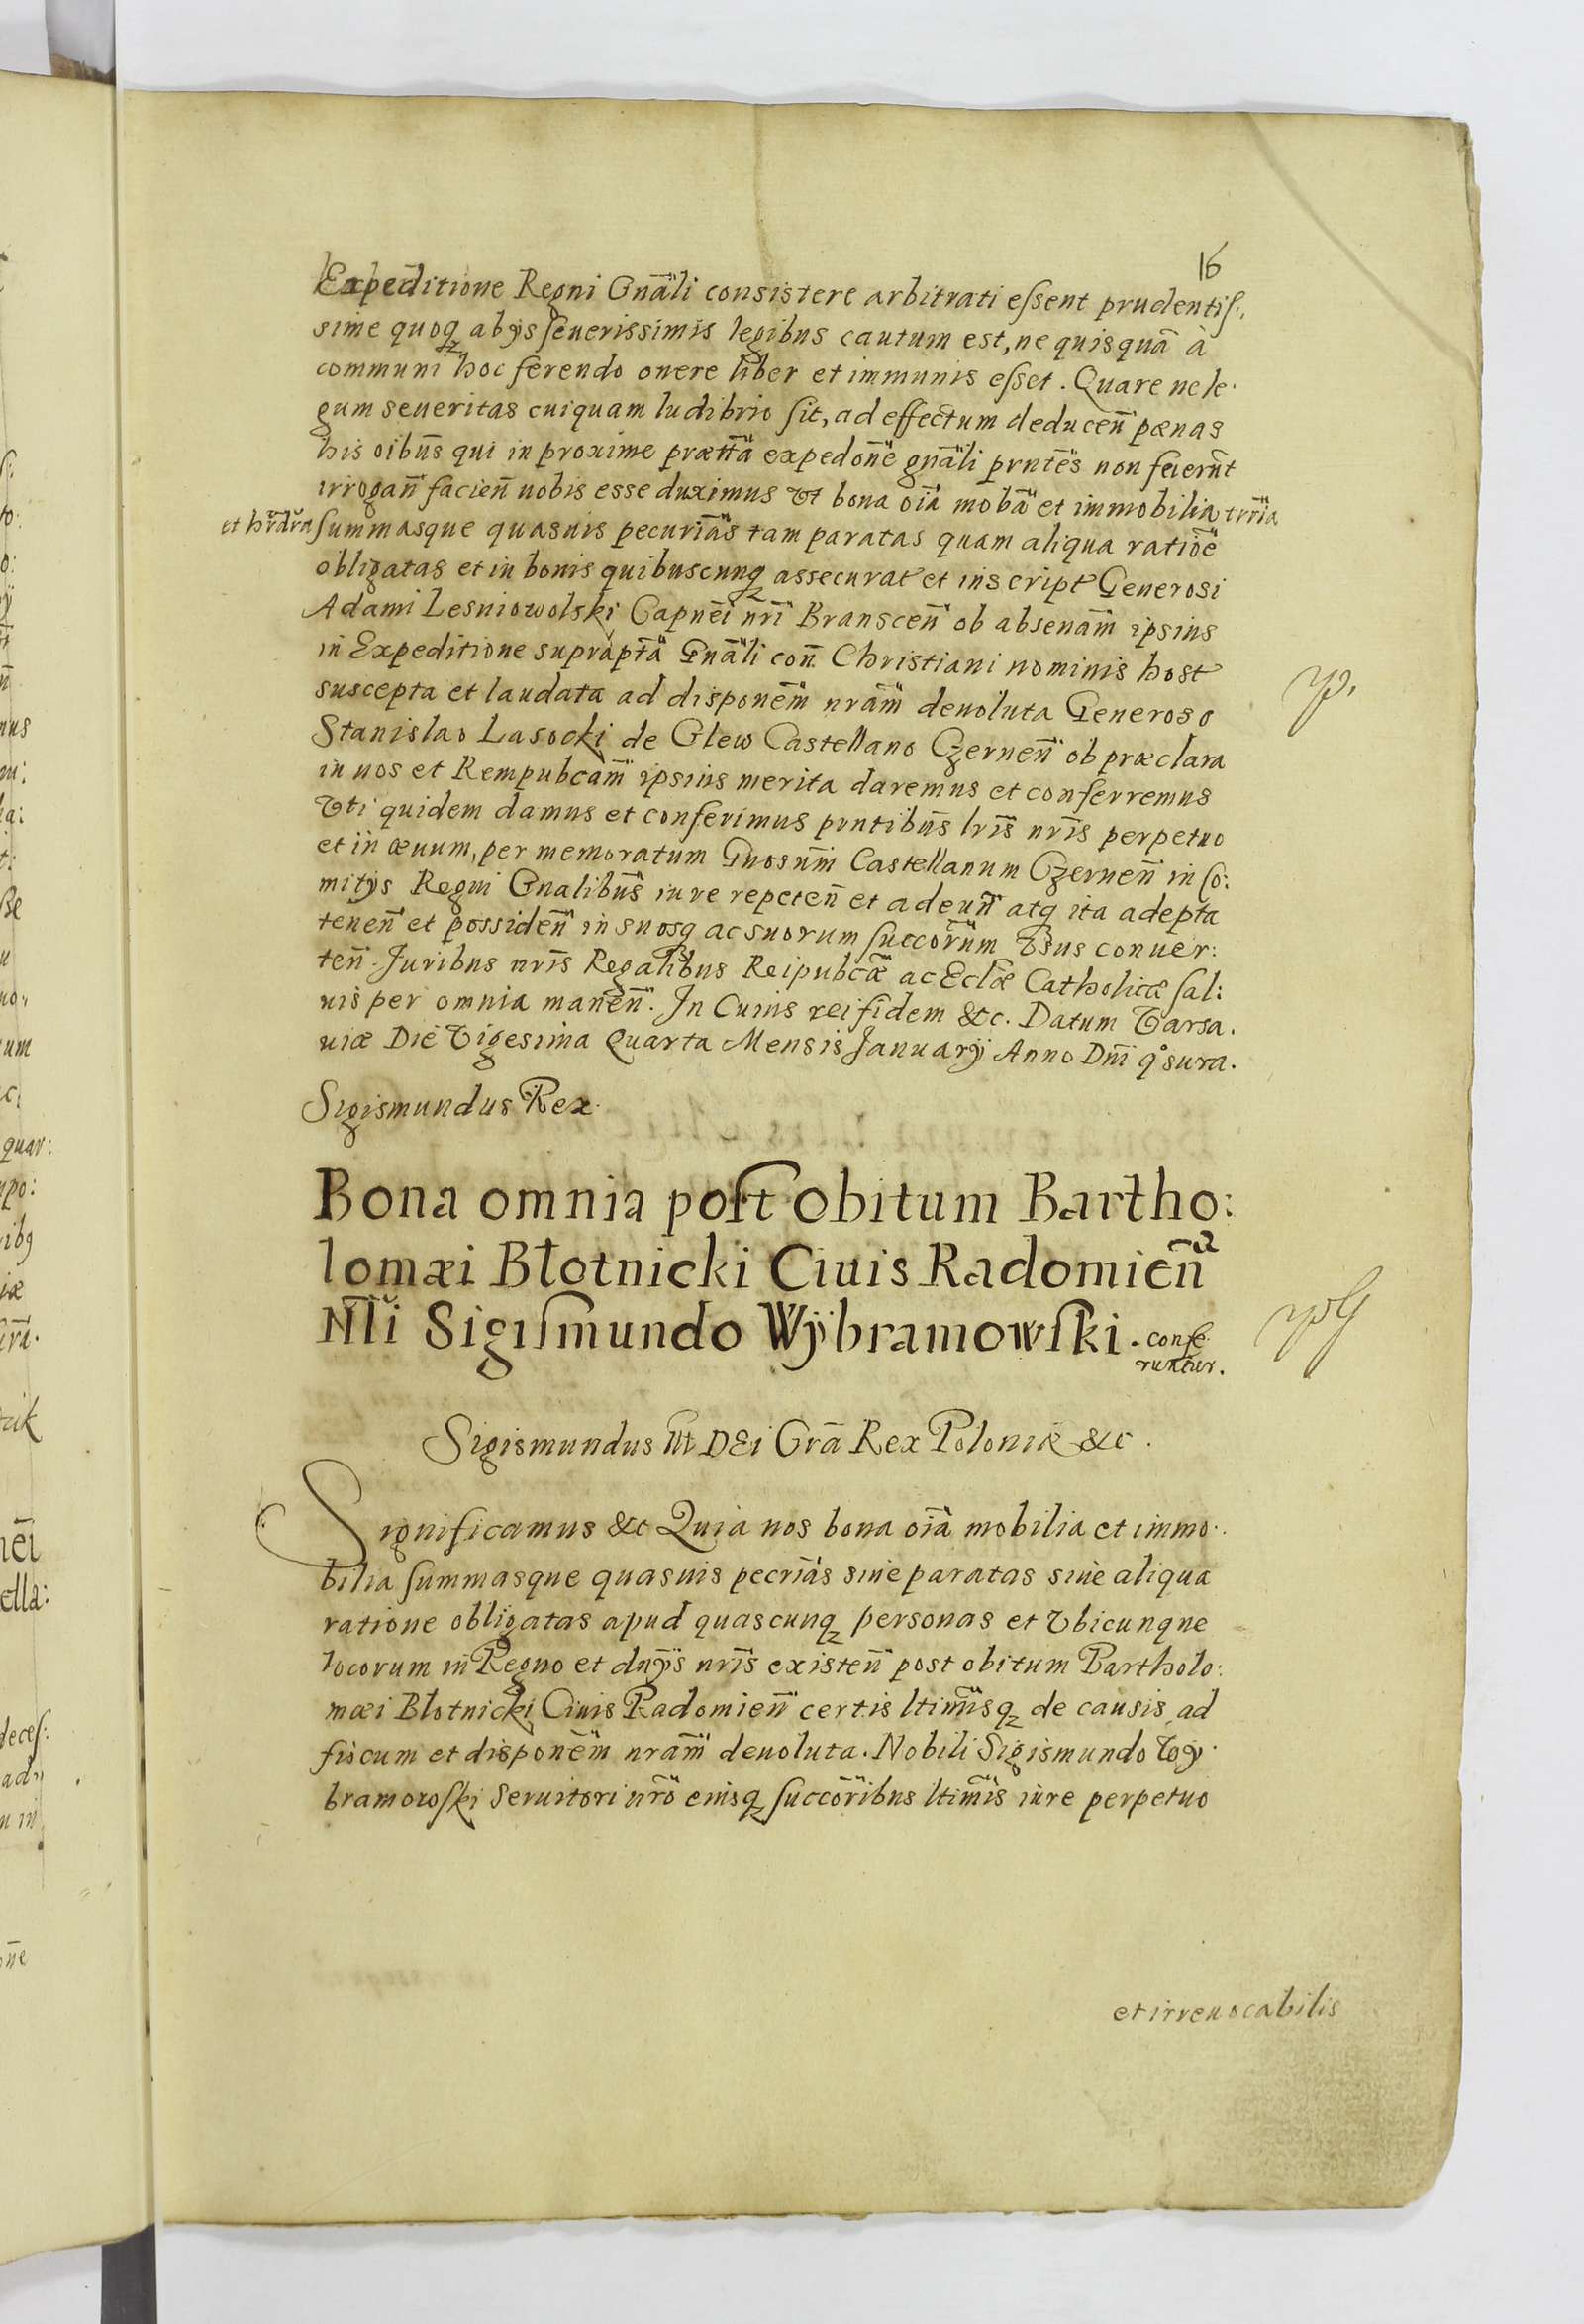 16
Expeditione Regni Gnãli consistere arbitrati essent prudentis:,
sime quoq₃ abÿs seuerissimis legibus cautum est, ne quisquã à
communi hoc ferendo onere liber et immunis esset. Quare ne le.
gum seueritas cuiquam ludibrio sit, ad effectum deducen̄ pænas
his oibus̄ qui in proxime prættã expedone᷃ gnãli prntes̃ non fuerut̃
irrogañ facien̄ nobis esse duximus Vt bona oiã mobã et immobilia trria̅
et hrãdrã summasque quasuis pecuriãs tam paratas quam aliqua ratioẽ
obligatas et in bonis quibuscunq₃ assecurat et inscript Generosi
Adami Lesniowolski Capnei᷃ nri᷃ Branscen̄ ob absenam̃ ipsius
in Expeditione supraptã Gnãli con̄ Christiani nominis host
suscepta et laudata ad disponem̃ nram̃ deuoluta Generoso
Stanislao Lasocki de Glew Castellano Czernen̄ ob præclara
in nos et Rempubcam̃ ipsius merita daremus et conferremus
Vti quidem damus et conferimus pntibus̃ lris̃ nris̃ perpetuo
et in æuum, per memoratum Gnosum̃ Castellanum Czernen̄ in Co:
mitÿs Regni Gnalibus̃ iure repeten̄ et adeun̄ atq ita adepta
tenen̄ et possiden̄ in suosq ac suorum succorum̃ Vsus conuer:
ten̄. Juribus nris̃ Regalibus Reipubcæ̃ ac Eclæ̃ Catholicæ sal:
uis per omnia manen̄. In Cuius rei fidem &c. Datum Varsa.
uiæ Die Vigesima Quarta Mensis Januarÿ Anno Dni᷃ q°sura.
Sigismundus Rex.
yp,
Bona omnia post obitum Bartho:
lomæi Błotnicki Ciuis Radomien̄
Nlĩ Sigismundo Wÿbramowski. confe
runtur.
Sigismundus III DEi Grã Rex Poloniæ &c.
Significamus &c Quia nos bona oiã mobilia et immo.
bilia summasque quasuis pecrias̃ siue paratas siue aliqua
ratione obligatas apud quascunq₃ personas et Vbicunque
locorum in Regno et dnÿs̃ nris̃ existen̄ post obitum Bartholo:
mæi Błotnicki Ciuis Radomien̄ certis ltimis̃q₃ de causis ad
fiscum et disponem̃ nram̃ deuoluta. Nobili Sigismundo Wÿ.
bramowski Seruitori nrõ eiusq₃ succoribus̃ ltimis̃ iure perpetuo
et irreuocabilis